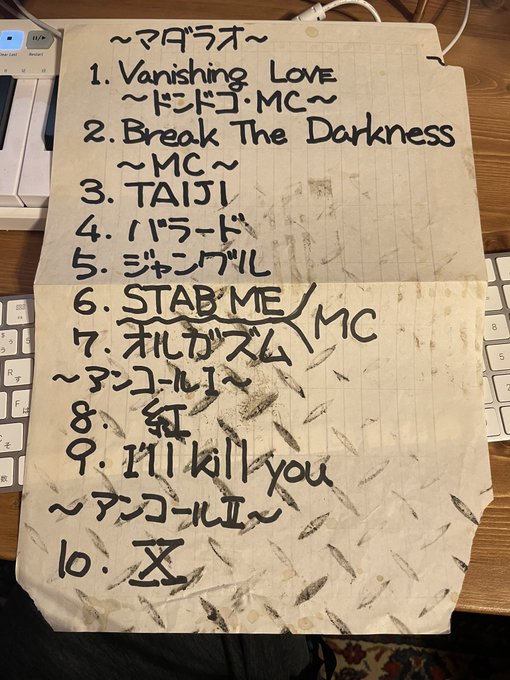 ～マダラオ～
1. Vanishing LOVE
～ドンドコ・MC～
2. Break The Darkness
～MC～
3. TAIJI
4. バラード
5. ジャングル
6. STAB ME
MC
7. オルガズム
～アンコールI～
8. 紅
9. I'll kill you
～アンコールII～
10. X